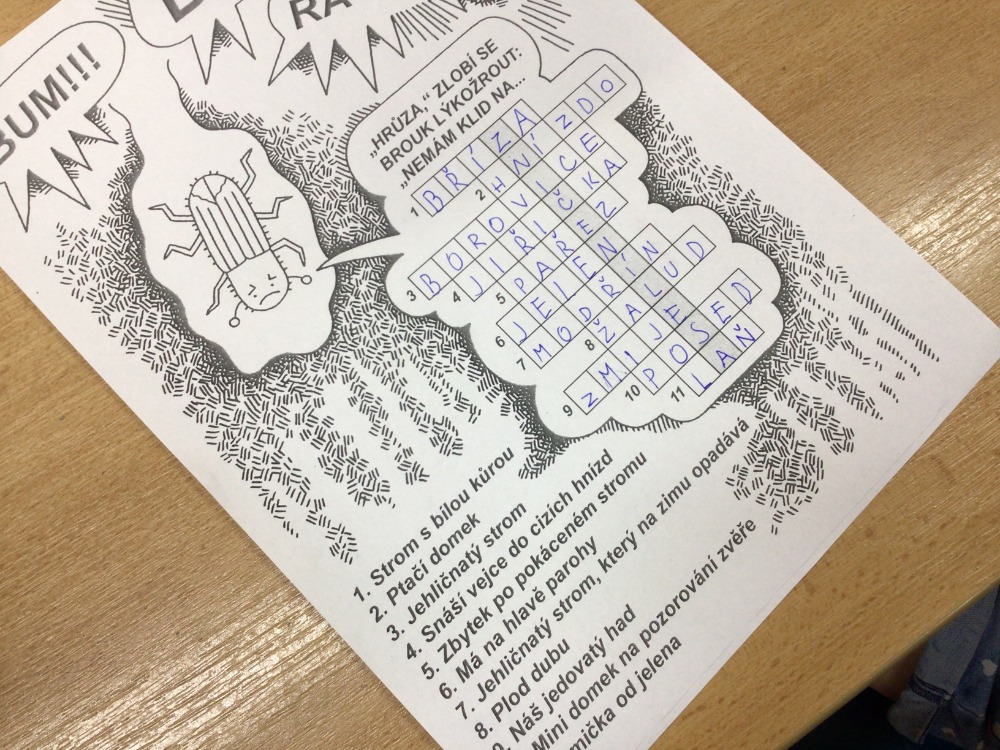 BUM!!!
RA
„HRŮZA,“ ZLOBÍ SE
BROUK LÝKOŽROUT:
„NEMÁM KLID NA...
1 BŘÍZA
2 HNÍZDO
3 BOROVICE
4 JIŘIČKA
5 PAŘEZ
6 JELEN
7 MODŘÍN
8 ŽALUD
9 ZMIJE
10 POSED
11 LAŇ
1. Strom s bílou kůrou
2. Ptačí domek
3. Jehličnatý strom
4. Snáší vejce do cizích hnízd
5. Zbytek po pokáceném stromu
6. Má na hlavě parohy
7. Jehličnatý strom, který na zimu opadává
8. Plod dubu
9. Náš jedovatý had
Mini domek na pozorování zvěře
mička od jelena